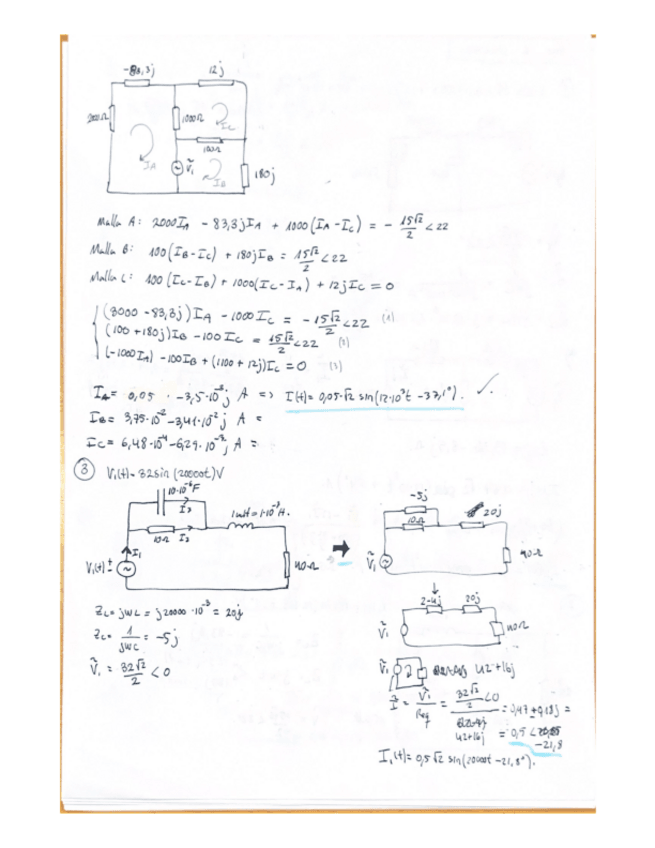 -83,3j 12j
2000Ω 1000Ω IC
100Ω
IA Ṽ1 IB 180j
Malla A: 2000IA - 83,3jIA + 1000(IA-IC) = - 15√2/2 <22
Malla B: 100(IB-IC) + 180jIB = 15√2/2 <22
Malla C: 100(IC-IB) + 1000(IC-IA) + 12jIC = 0
(3000 - 83,3j)IA - 1000IC = - 15√2/2 <22 (1)
(100 + 180j)IB - 100IC = 15√2/2 <22 (2)
(-1000IA) - 100IB + (1100 + 12j)IC = 0 (3)
IA = 0,05 A => I(t) = 0,05·√2 sin(12·10³t - 37,1°). ✓.
IB = 3,75·10⁻² - 3,41·10⁻²j A =
IC = 6,48·10⁻⁴ - 6,29·10⁻³j A =
③ V1(t) = 32sin(20000t)V
10·10⁻⁶F
I3 1mH = 1·10⁻³H.
10Ω I2
I1
V1(t) ± 40Ω
-5j
10Ω 20j
➡
Ṽ1 40Ω
ZL = jwL = j20000·10⁻³ = 20j
ZC = 1/jwC = -5j
Ṽ1 = 32√2/2 <0
2-4j 20j
Ṽ1 40Ω
Ṽ1 42+16j
Ĩ = Ṽ1/Req = 32√2/2 <0 / 42+16j =
= 0,5 <
-21,8
I1(t) = 0,5√2 sin(20000t - 21,8°).